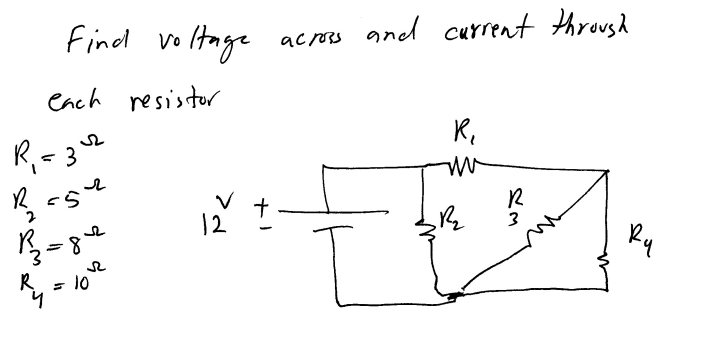 Find voltage across and current through
each resistor
R₁ = 3 Ω
R₂ = 5 Ω
R₃ = 8 Ω
R₄ = 10 Ω
12 V
+
-
R₁
R₂
R₃
R₄